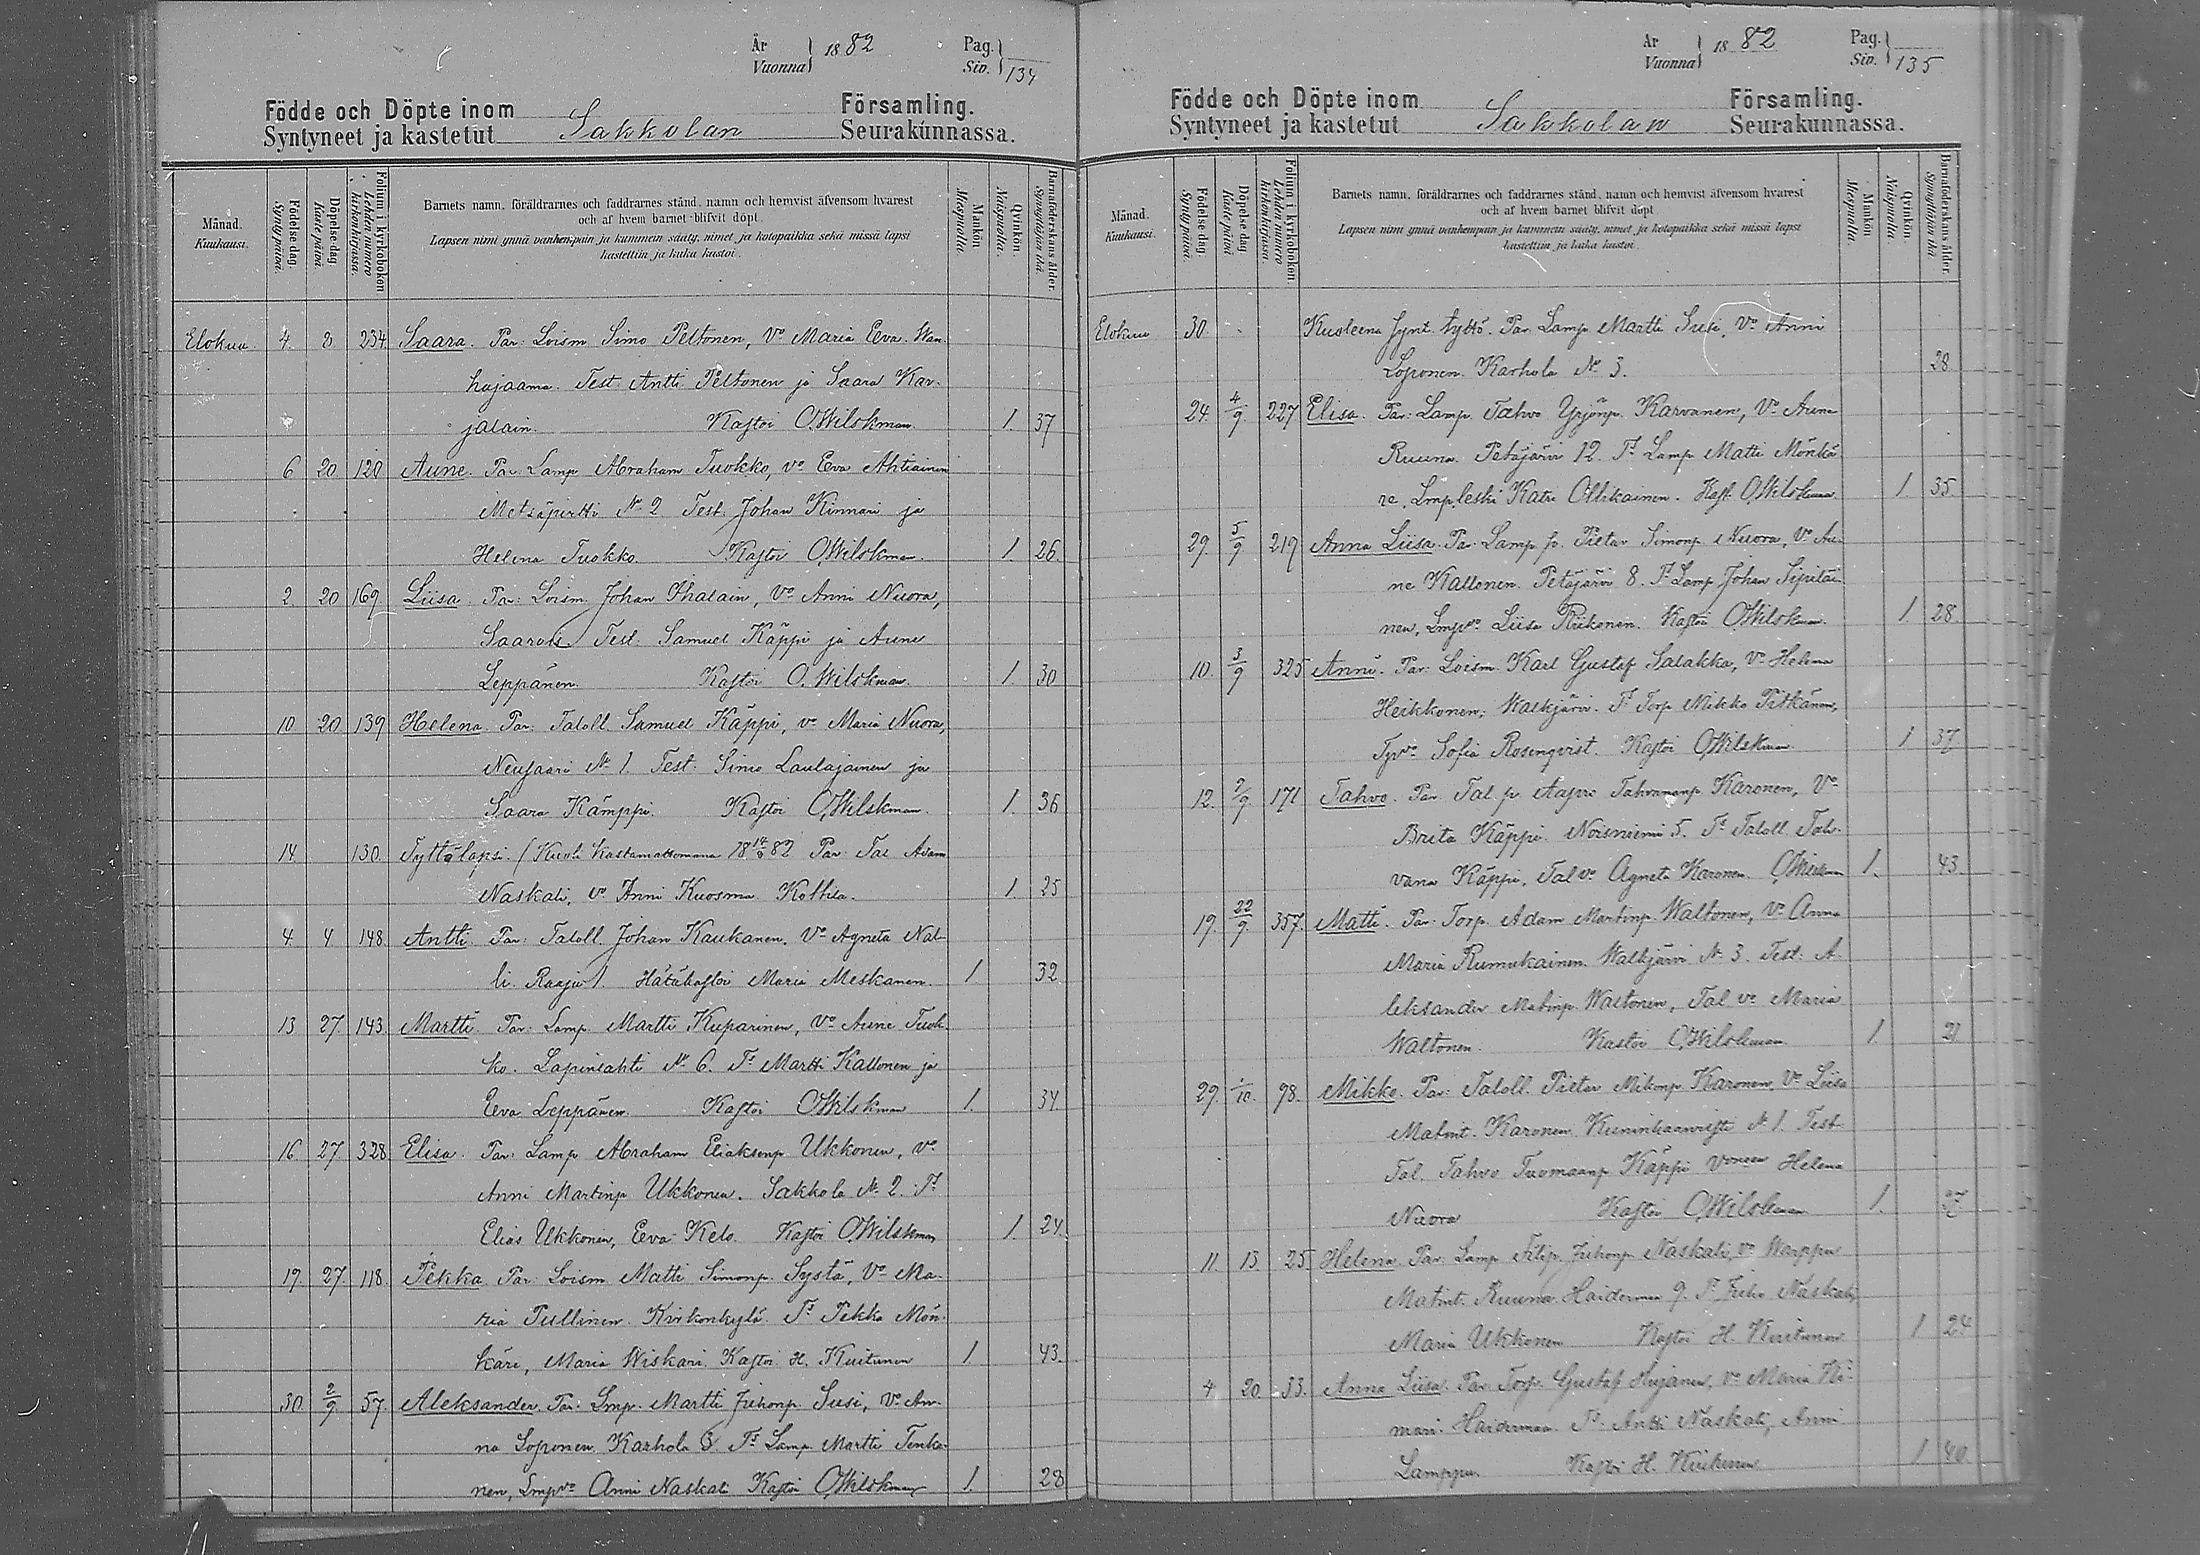 År Vuonna 1882 Pag. Siv. 134
Födde och Döpte inom Församling.
Syntyneet ja kastetut Sakkolan Seurakunnassa.
Månad. Kuukausi.
Födelsedag. Syntypäivä.
Döpelsedag. Kastepäivä.
Folium i kyrkoboken. Lehden numero kirkonkirjassa.
Barnets namn, föräldrarnes och faddrarnes stånd, namn och hemvist äfvensom hvarest
och af hvem barnet blifvit döpt.
Lapsen nimi ynnä vanhempain ja kummein sääty, nimet ja kotopaikka sekä missä lapsi
kastettiin ja kuka kastoi.
Mankön. Miespuolia.
Qvinkön. Naispuolia.
Barnaföderskans ålder. Synnyttäjän ikä.
Elokuu. 4. 8 234 Saara. Par: Loism Simo Peltonen, Vo Maria Eva Wan
hajaama. Test. Antti Peltonen ja Saara Kar-
jalain. Kastoi O.Wilskman. 1. 37
6 20 120 Aune. Par: Lamp Abraham Tuokko, vo Eva Ahtiainen
Metsäpirtti No 2 Test. Johan Kinnari ja
Helena Tuokko. Kastoi O.Wilskman. 1. 26.
2. 20 169 Liisa. Par: Loism. Johan Ihalain, Vo Anni Nuora,
Saarois Test. Samuel Käppi ja Aune
Leppänen. Kastoi O. Wilskman. 1. 30
10 20 139 Helena. Par: Taloll. Samuel Käppi, vo Maria Nuora,
Neusaari No 1. Test. Simo Laulajainen ja
Saara Kämppi. Kastoi O.Wilskman. 1. 36
14 130 Tyttölapsi. (Kuoli kastamattomana 18 14/8 82 Par Tal Adam
Naskali, vo Anni Kuosma Kottila. 1. 25
4. 4 148. Antti Par: Taloll. Johan Kaukanen. Vo Agneta Nal-
li. Raaju 1. Hätäkastoi Maria Meskanen. 1 32
13 27. 143. Martti. Par: Lamp. Martti Kuparinen, Vo Aune Tuok-
ko. Lapinlahti No 6. Ts Martti Kallonen ja
Eeva Leppänen. Kastoi O.Wilskman 1. 34
16 27 328 Elisa. Par: Lamp Abraham Eliaksenp Ukkonen, vo
Anni Martinp Ukkonen. Sakkola No 2. Ts
Elias Ukkonen, Eeva Kelo. Kastoi O.Wilskman 1. 24.
19. 27. 118. Pekka. Par: Loism Matti Simonp. Systä, Vo Ma-
ria Pullinen Kirkonkylä. Ts Pekka Mön-
käre, Maria Wiskari. Kastoi H. Kuitunen 1. 43.
30. 2/9. 57. Aleksander. Par: Lmp. Martti Juhonp Susi, Vo An-
na Loponen Karhola 3 Ts Lamp. Martti Tenka-
nen, Lmpvo Anni Naskali Kastoi O.Wilskman 1. 28
År Vuonna 1882 Pag. Siv. 135
Födde och Döpte inom Församling.
Syntyneet ja kastetut Sakkolan Seurakunnassa.
Månad. Kuukausi.
Födelsedag. Syntypäivä.
Döpelsedag. Kastepäivä.
Folium i kyrkoboken. Lehden numero kirkonkirjassa.
Barnets namn, föräldrarnes och faddrarnes stånd, namn och hemvist äfvensom hvarest
och af hvem barnet blifvit döpt.
Lapsen nimi ynnä vanhempain ja kummein sääty, nimet ja kotopaikka sekä missä lapsi
kastettiin ja kuka kastoi.
Mankön. Miespuolia.
Qvinkön. Naispuolia.
Barnaföderskans ålder. Synnyttäjän ikä.
Elokuu 30. Kuoleena synt. tyttö. Par. Lamp Martti Susi, Vo Anni
Loponen. Karhola No 3. 28
24. 4/9. 227 Elisa. Par: Lamp. Tahvo Yrjönp. Karvanen, Vo Aune
Ruuna. Petäjärvi 12. Ts Lamp Matti Mönkä
re, Lmp.leski Katri Ollikainen. Kast. O.Wilskman 1 35
29. 5/9 219 Anna Liisa. Par: Lamp p. Pietar Simonp. Nuora, Vo Au-
ne Kallonen Petäjärvi 8. Ts Lamp Johan Sipiläi
nen, Lmpvo Liisa Riikonen. Kastoi O.Wilskman. 1 28
10. 3/9 325 Anni. Par: Loism. Karl Gustaf Salakka, Vo Helena
Heikkonen; Walkjärvi. Ts Torp Mikko Pitkänen,
Tpvo Sofia Rosenqvist. Kastoi O.Wilskman. 1 37
12. 171 Tahvo. Par. Tal. p. Tahvananp Karonen, Vo
Brita Käppi. Noisniemi 5. Ts Taloll. Tah-
vana Käppi, Tal vo Agneta Karonen O.Wilskman 1. 43.
19. 22/9. 357. Matti. Par: Torp. Adam Martinp. Waltonen, Vo Anna
Maria Rumukainen Walkjärvi No 3. Test. A-
leksander Matinp. Waltonen, Tal vo Maria
Waltonen. Kastoi O.Wilskman 1.
29. 1/10. 98. Mikko. Par: Taloll. Pietar Mikonp. Karonen, Vo Liisa
Matint. Karonen No 1. Test
Tal. Tahvo Tuomaanp Käppi Helena
Nuora Kastoi O.Wilskman 1.
11. 13. 25 Helena Par. Lamp. Filip Juhonp Naskali, vo Warppu
Matint. Ruuna. Haiderman 9. Ts Juho Naskali,
Maria Ukkonen Kastoi H. Kuitunen 1 24
4 20. 33. Anna Liisa. Par. Torp. Gustaf vo Maria
Haiderman Ts Antti Naskali, Anni
Lamppu. Kastoi H. 1 40